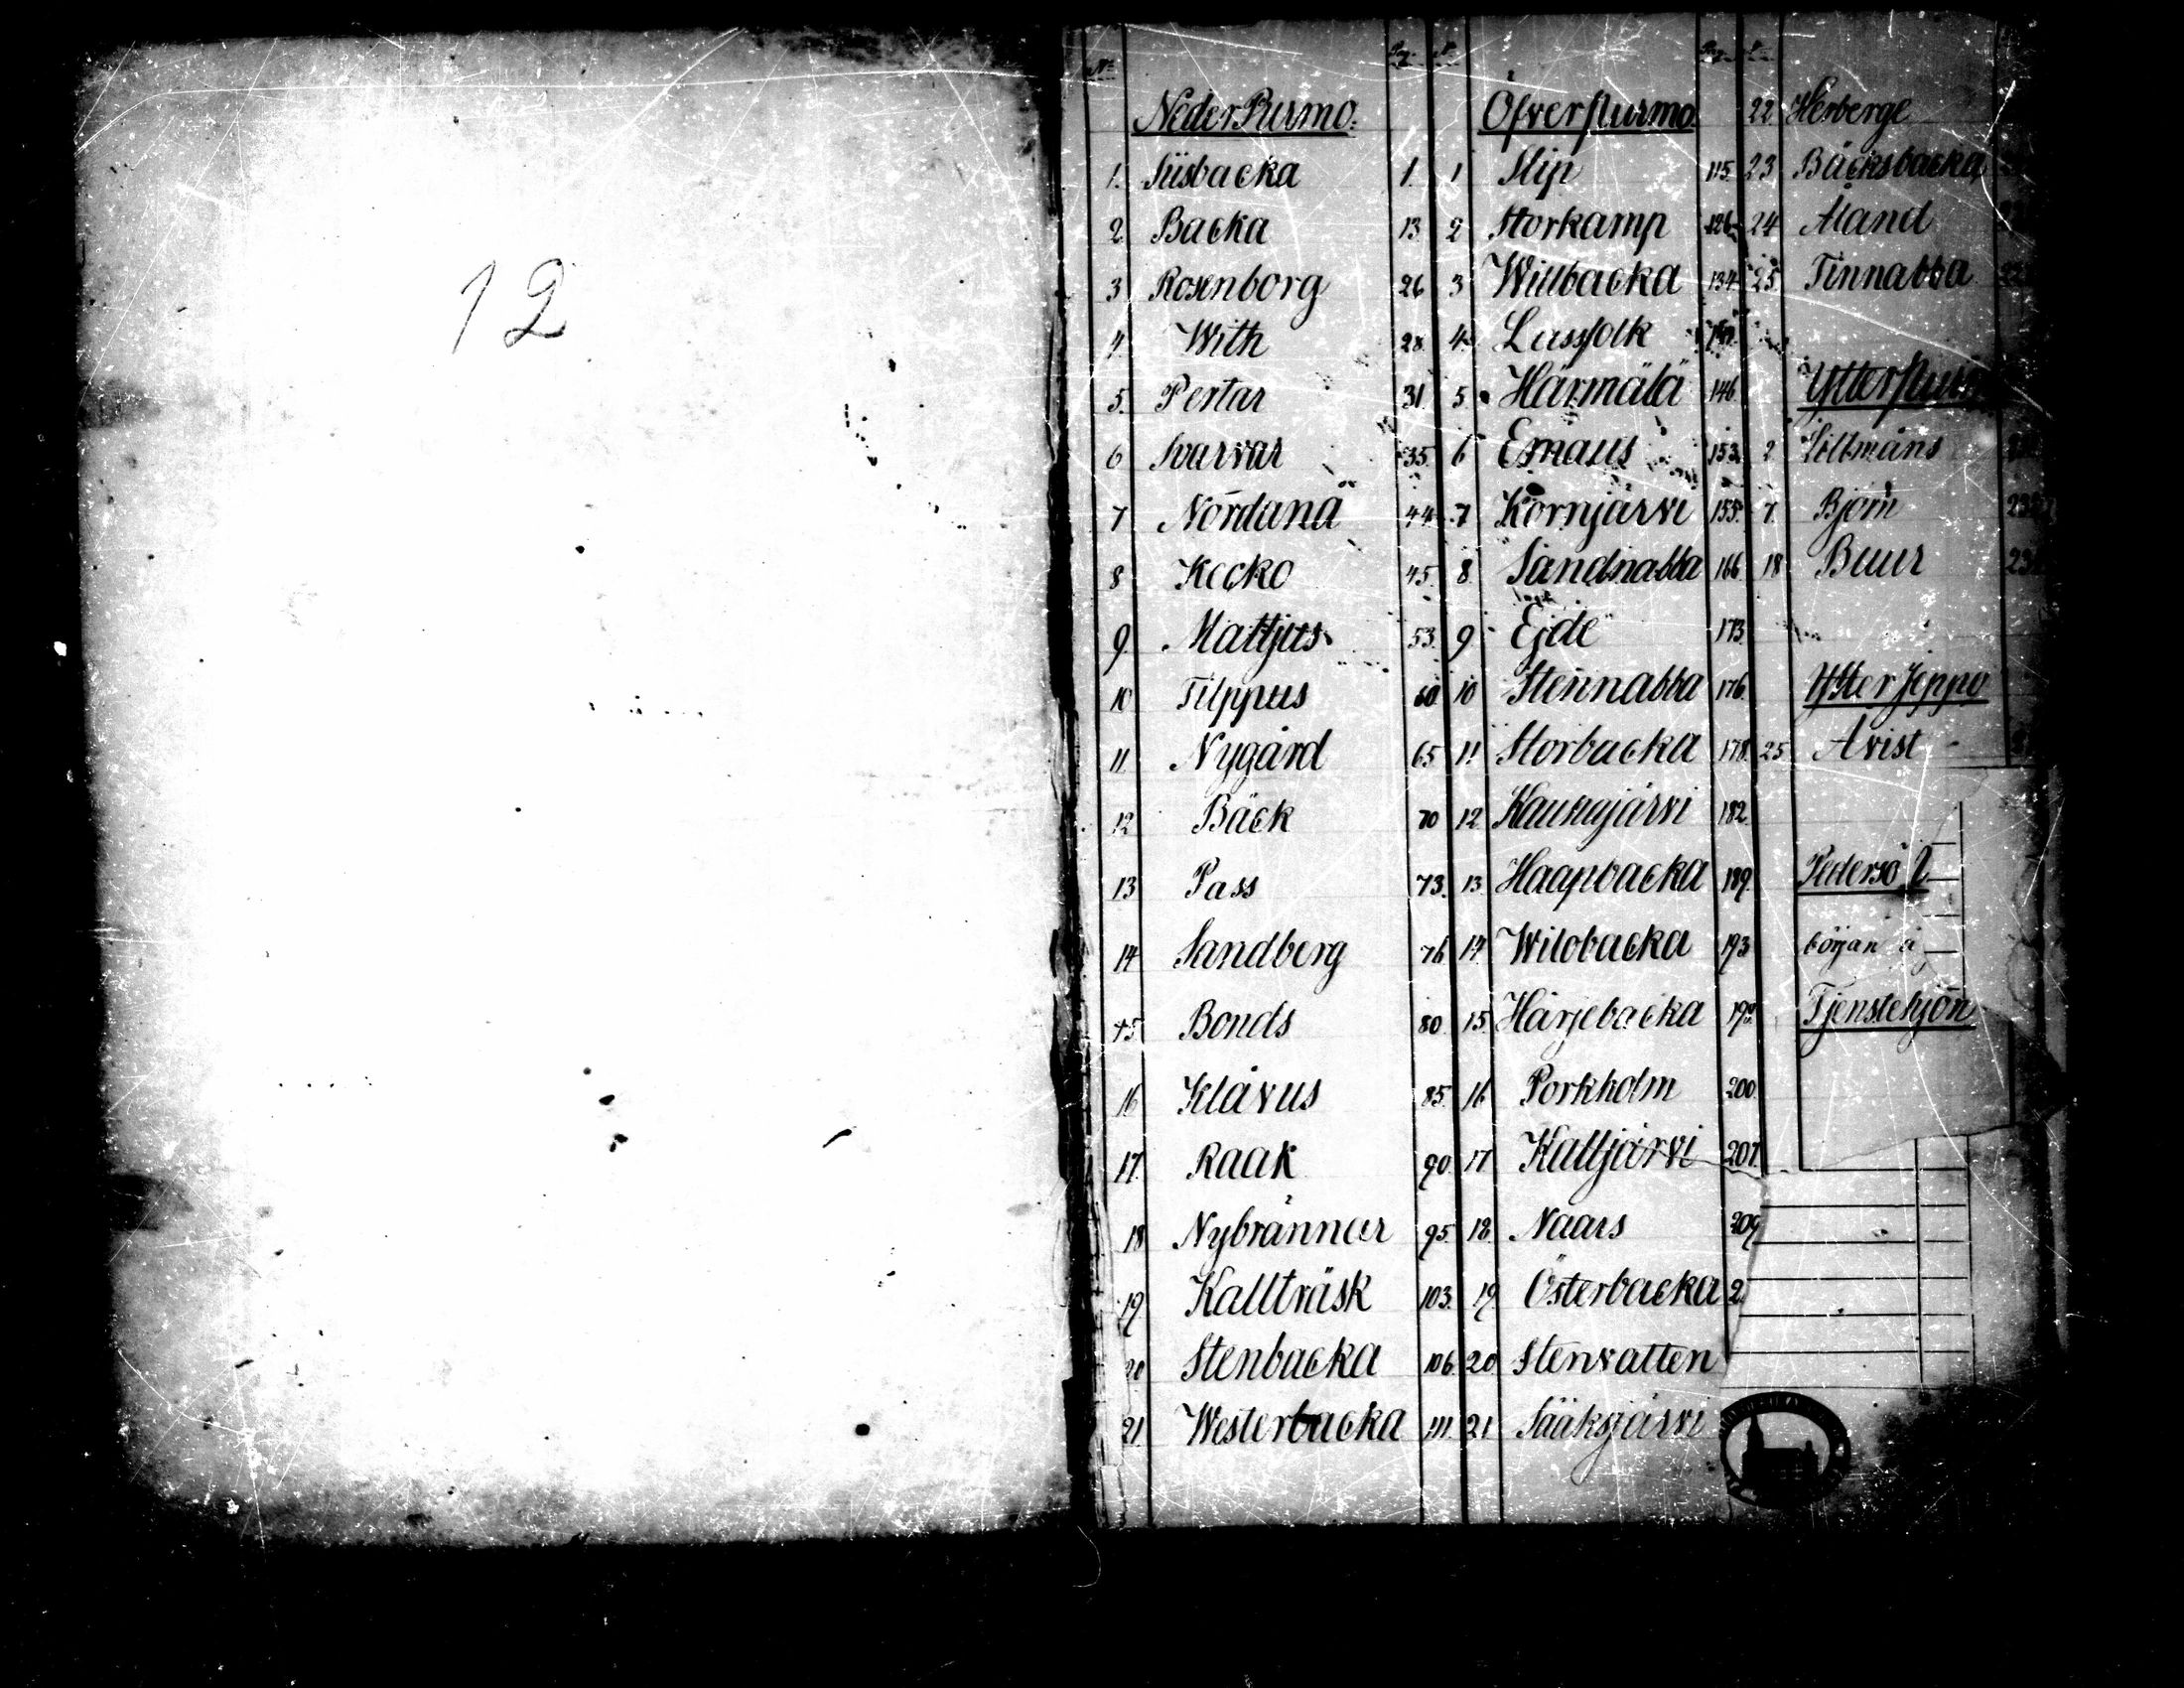 12
No Pag. No Pag. No
Neder Purmo.
1. Siisbacka 1.
2 Backa 13
3 Rosenborg 26
4 With 28
5. Pertar 31.
6 Svarvar 35.
7 Nördanå 44
8 Kecko 45.
9. Mattjus 53.
10 Filppus 60
11. Nygård 65
12 Bäck 70
13 Pass 73.
14 Sandberg 76
15 Bonds 80.
16 Klåvus 85.
17. Raak 90
18 Nybrännar 95.
19 Kallträsk 103.
20 Stenbacka 106
21. Westerbacka 111.
Öfverpurmo
1 Slip 115.
2 Storkamp 126
3 Willbacka 134
4. Lassfolk
5. Härmälä 146
6 Emaus 153.
7 Kornjärvi 155.
8. Sandnabba 166
9. Ejde 173.
10 Stennabba 176.
11 Storbacka 178.
12 Kaunujärvi 182.
13. Haapbacka 189.
14. Wildbacka 193
15. Härjebacka
16 Porkholm 200.
17 Kaltjärvi 207.
18. Naars 209
19. Österbacka 2
20 Stenvatten
21 Sääksjärvi
22. Herberge
23 Bäcksbacka
24 Åland
25. Finnabba
Ytterpurmo
2 Lillmåns
7. Björn
18 Buur
Ytter Jeppo
25 Åvist
Pedersö
början å
Tjenstehjon